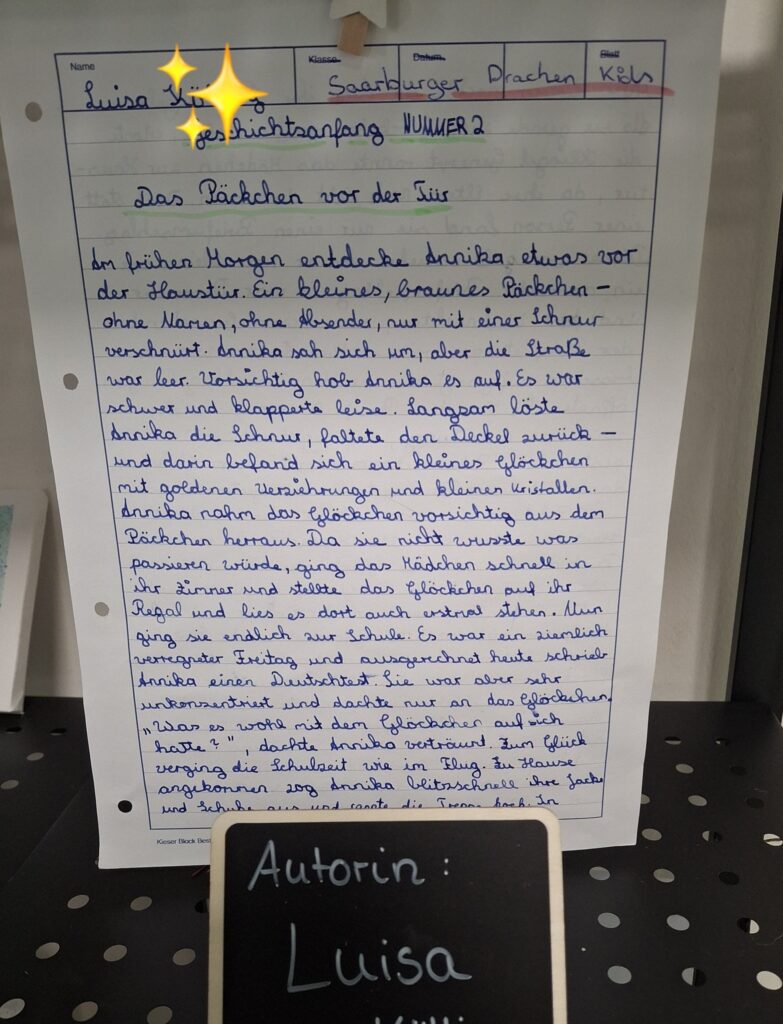 Name
Klasse
Datum
Blatt
Luisa
Saarburger Drachen Kids
Geschichtsanfang NUMMER 2
Das Päckchen vor der Tür
Am frühen Morgen entdecke Annika etwas vor
der Haustür. Ein kleines, braunes Päckchen –
ohne Namen, ohne Absender, nur mit einer Schnur
verschnürt. Annika sah sich um, aber die Straße
war leer. Vorsichtig hob Annika es auf. Es war
schwer und klapperte leise. Langsam löste
Annika die Schnur, faltete den Deckel zurück –
und darin befand sich ein kleines Glöckchen
mit goldenen Verziehrungen und kleinen Kristallen.
Annika nahm das Glöckchen vorsichtig aus dem
Päckchen herraus. Da sie nicht wusste was
passieren würde, ging das Mädchen schnell in
ihr Zimmer und stellte das Glöckchen auf ihr
Regal und lies es dort auch erstmal stehen. Nun
ging sie endlich zur Schule. Es war ein ziemlich
verregneter Freitag und ausgerechnet heute schrieb
Annika einen Deutschtest. Sie war aber sehr
unkonzentriert und dachte nur an das Glöckchen.
„Was es wohl mit dem Glöckchen auf sich
hatte?", dachte Annika verträumt. Zum Glück
verging die Schulzeit wie im Flug. Zu Hause
angekommen zog Annika blitzschnell ihre Jacke
und Schuhe aus und rannte die Treppe hoch. In
Kieser Block
Autorin:
Luisa